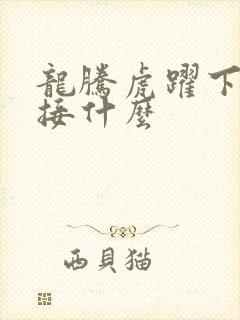 龍騰虎躍下
接什麼
西貝猫